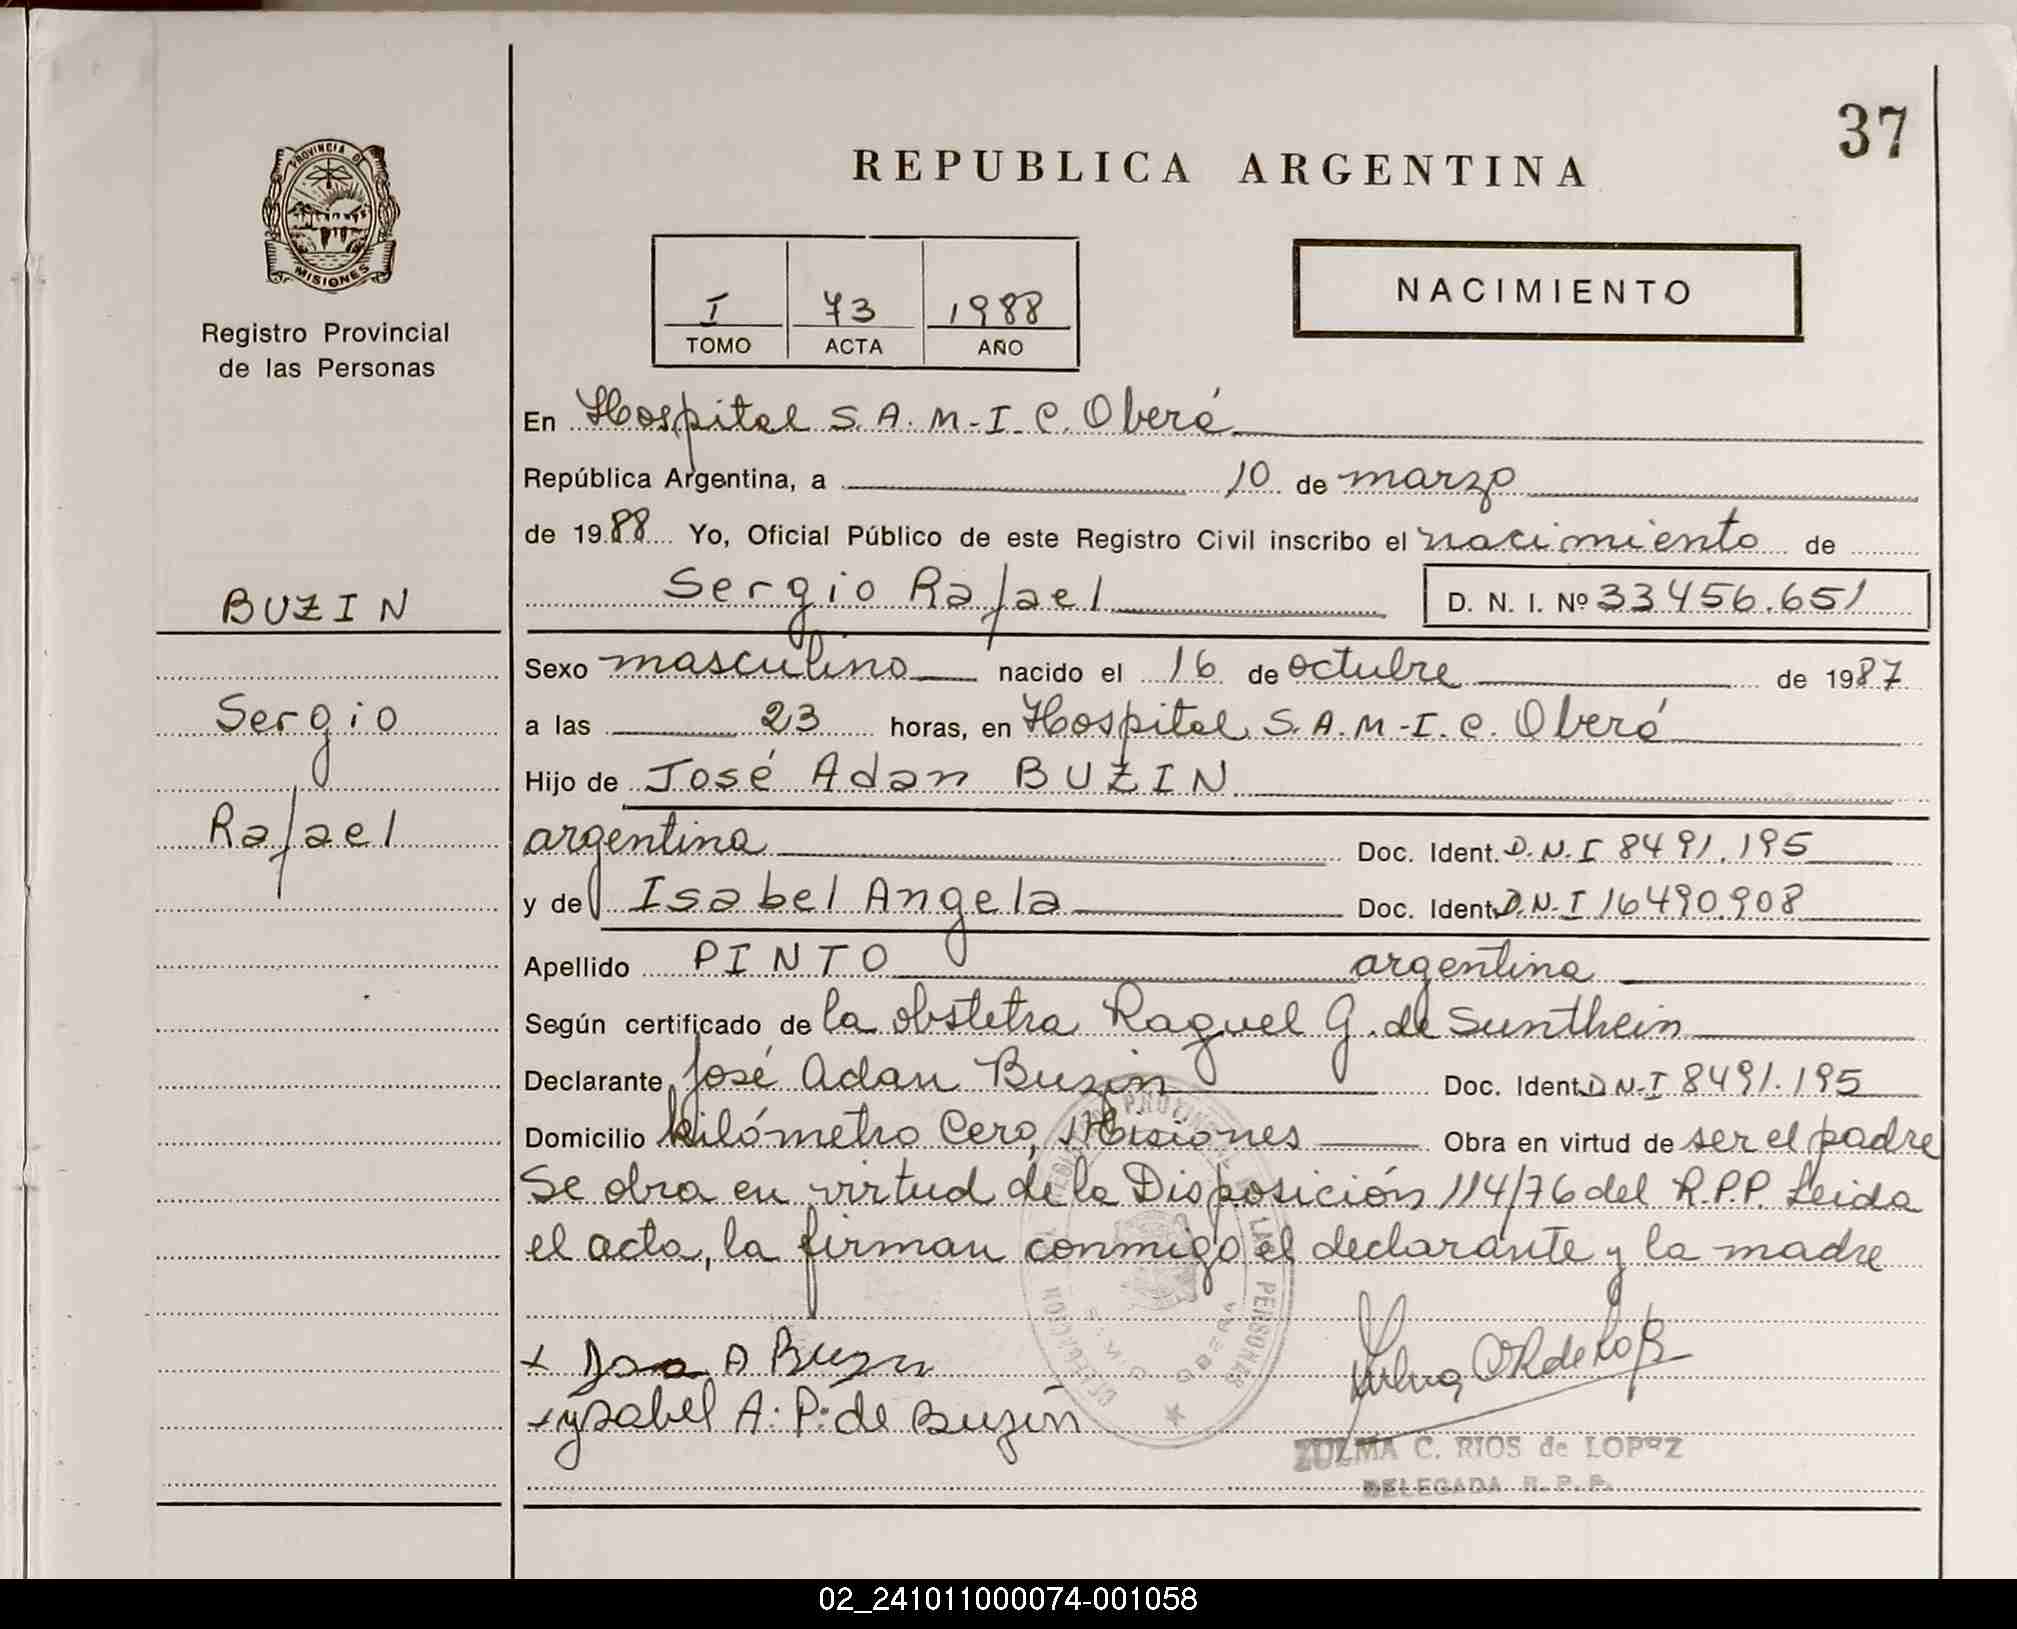 37
REPUBLICA ARGENTINA
PROVINCIA DE
MISIONES
Registro Provincial
de las Personas
I 73 1988
TOMO ACTA AÑO
NACIMIENTO
En Hospital S.A.M-I-C. Oberá
República Argentina, a 10 de marzo
de 1988 Yo, Oficial Público de este Registro Civil inscribo el nacimiento de
BUZIN
Sergio Rafael D. N. I. Nº 33456.651
Sexo masculino nacido el 16 de octubre de 1987
Sergio
a las 23 horas, en Hospital S.A.M-I.C. Oberá
Hijo de José Adan BUZIN
Rafael
argentina Doc. Ident. D.N.I 8491.195
y de Isabel Angela Doc. Ident. D.N.I 16490.908
Apellido PINTO argentina
Según certificado de la obstetra Raquel G. de Sunthein
Declarante José Adan Buzin Doc. Ident. D.N.I 8491.195
Domicilio kilómetro Cero, Misiones Obra en virtud de ser el padre
Se obra en virtud de la Disposición 114/76 del R.P.P. Leida
el acta, la firman conmigo el declarante y la madre
x Jose A Buzin
x ysabel A: P: de Buzin
DELEGACION OBERA
ZULMA C. RIOS de LOPEZ
DELEGADA R.P.P.
02_241011000074-001058